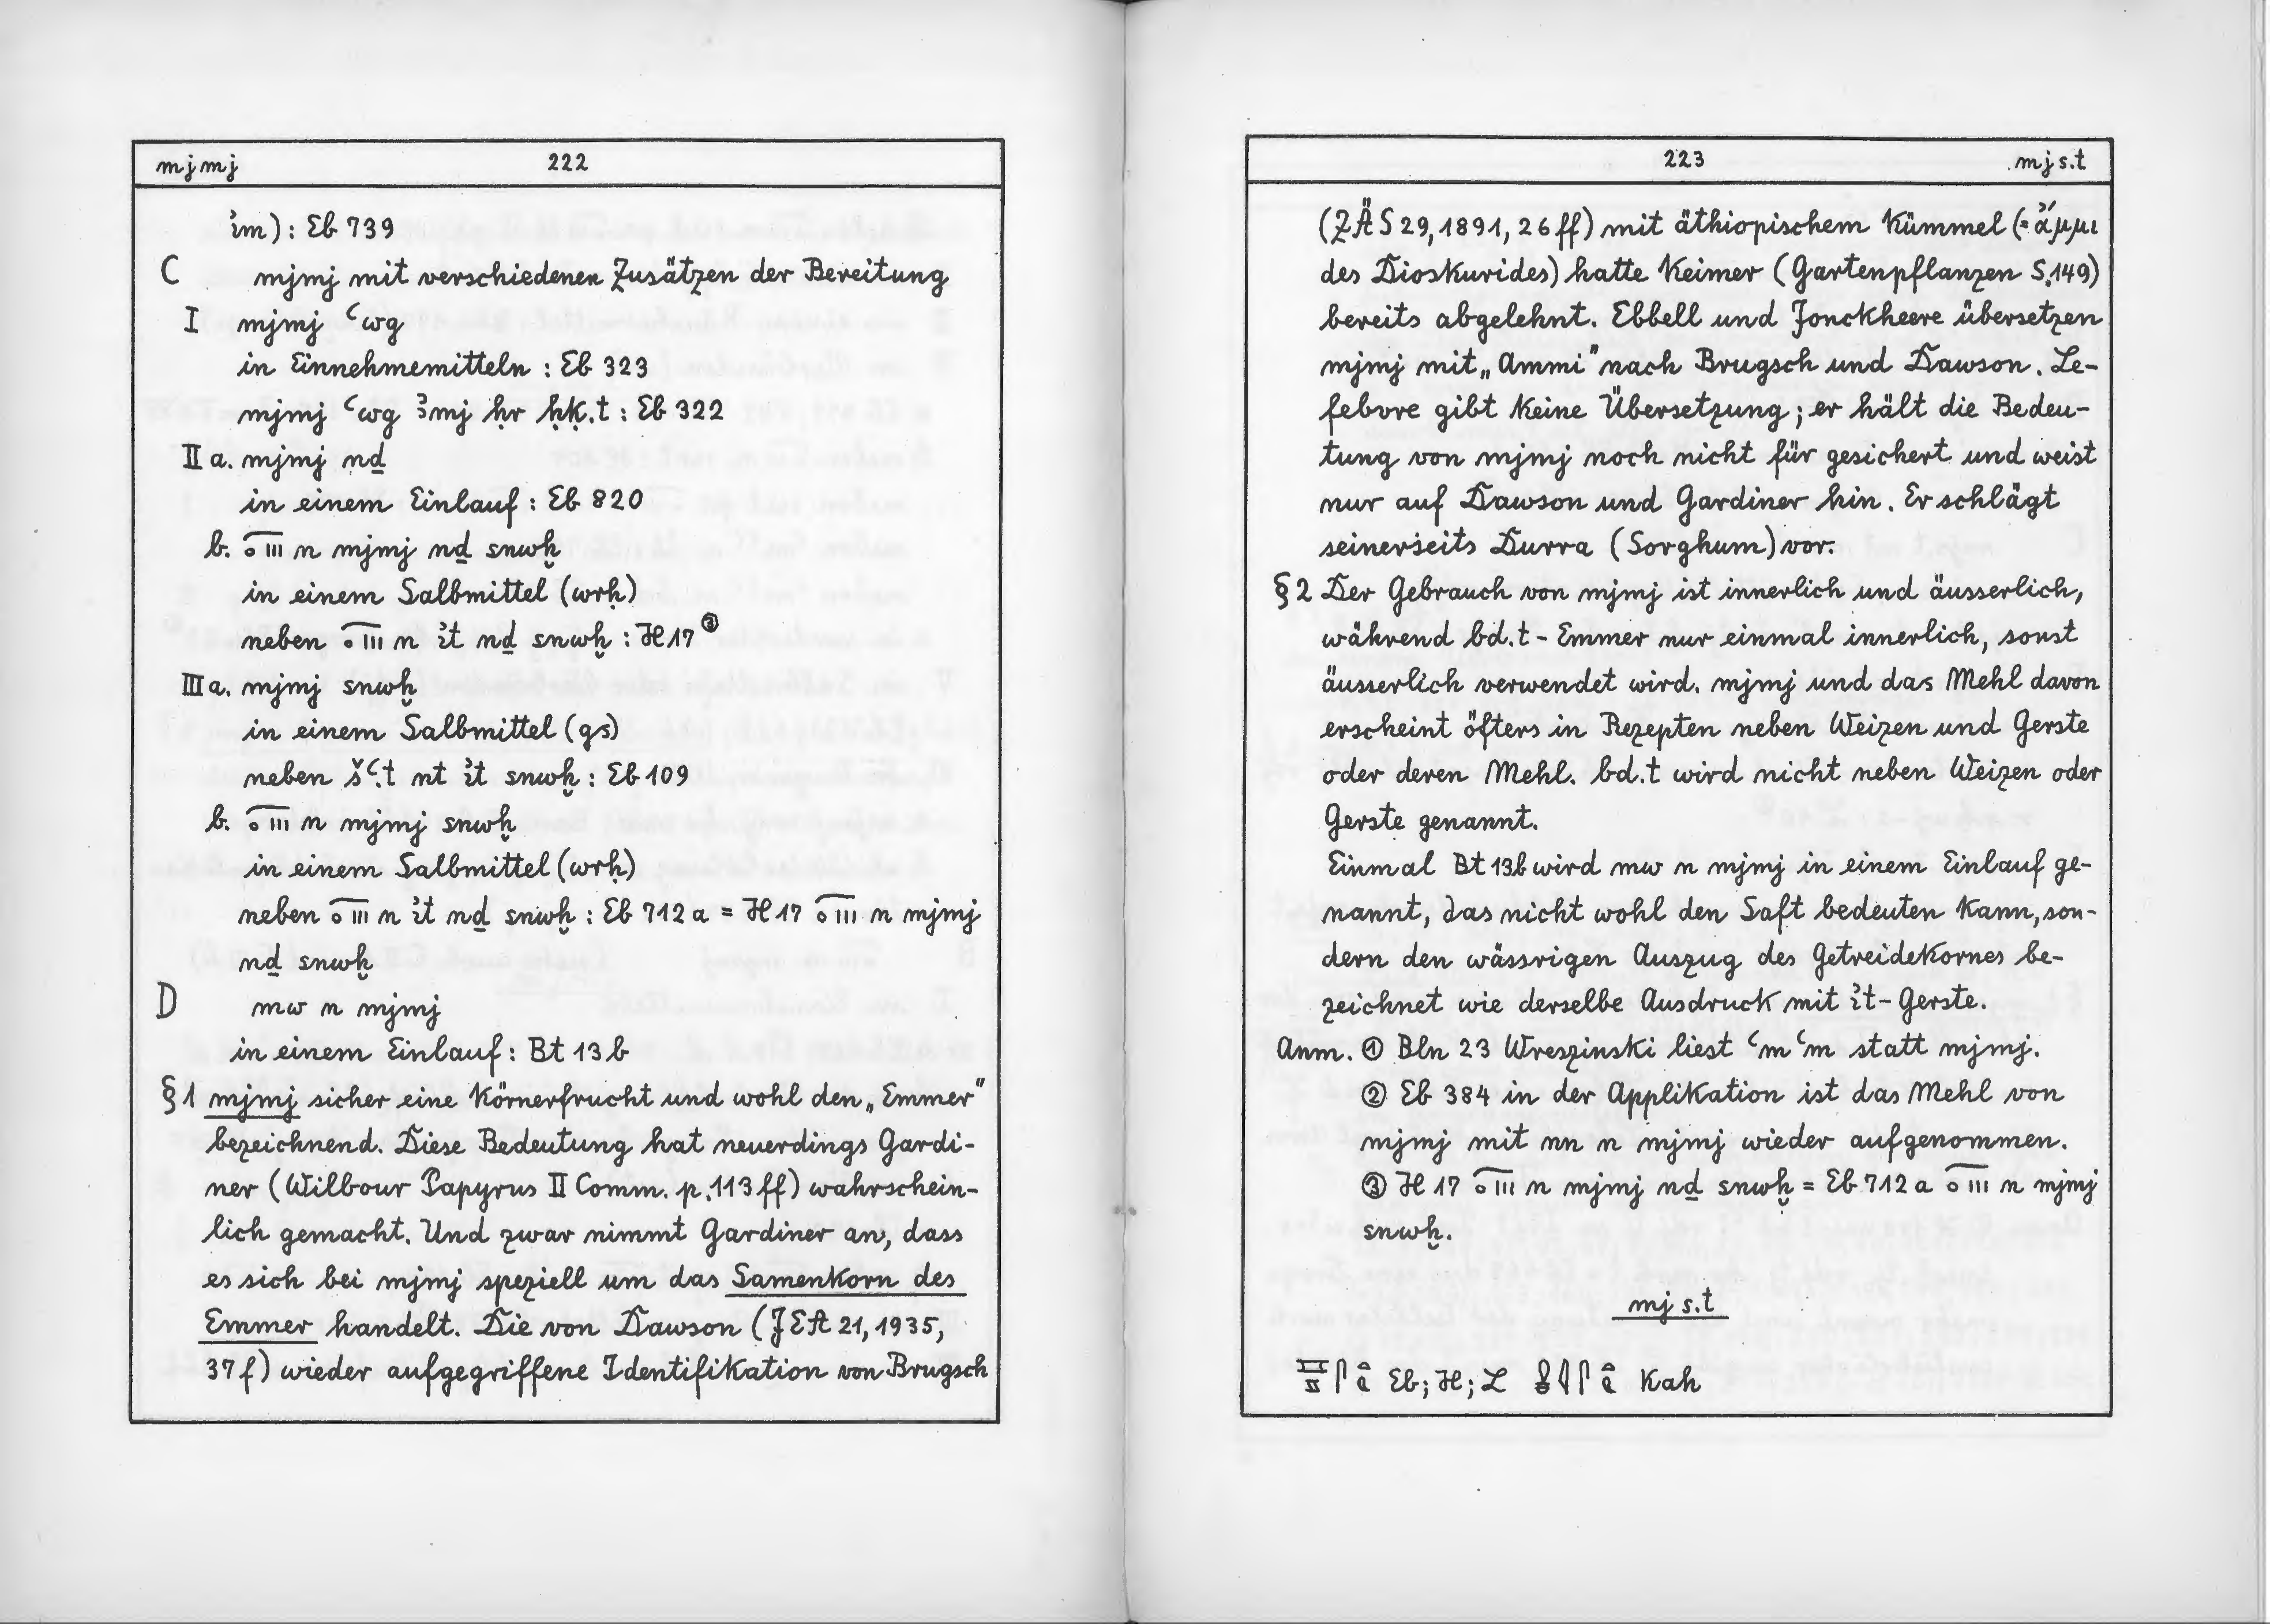 mjmj 222
ı͗m) : Eb 739
C mjmj mit verschiedenen Zusätzen der Bereitung
I mjmj ꜥwg
in Einnehmemitteln : Eb 323
mjmj ꜥwg ꜣmj ḥr ḥḳ.t : Eb 322
II a. mjmj nḏ
in einem Einlauf : Eb 820
b. n mjmj nḏ snwḫ
in einem Salbmittel (wrḥ)
neben n ı͗t nḏ snwḫ : H 17 ③
III a. mjmj snwḫ
in einem Salbmittel (gs)
neben šꜥ.t nt ı͗t snwḫ : Eb 109
b. n mjmj snwḫ
in einem Salbmittel (wrḥ)
neben n ı͗t nḏ snwḫ : Eb 712 a = H 17 n mjmj
nḏ snwḫ
D mw n mjmj
in einem Einlauf : Bt 13 b
§ 1 mjmj sicher eine Körnerfrucht und wohl den „Emmer"
bezeichnend. Diese Bedeutung hat neuerdings Gardi-
ner (Wilbour Papyrus II Comm. p. 113 ff) wahrschein-
lich gemacht. Und zwar nimmt Gardiner an, dass
es sich bei mjmj speziell um das Samenkorn des
Emmer handelt. Die von Dawson (JEA 21, 1935,
37 f) wieder aufgegriffene Identifikation von Brugsch
223 mjs.t
(ZÄS 29, 1891, 26 ff) mit äthiopischem Kümmel (= ἄμμι
des Dioskurides) hatte Keimer (Gartenpflanzen S. 149)
bereits abgelehnt. Ebbell und Jonckheere übersetzen
mjmj mit „Ammi" nach Brugsch und Dawson. Le-
febvre gibt keine Übersetzung ; er hält die Bedeu-
tung von mjmj noch nicht für gesichert und weist
nur auf Dawson und Gardiner hin. Er schlägt
seinerseits Durra (Sorghum) vor.
§ 2 Der Gebrauch von mjmj ist innerlich und äusserlich,
während bd.t - Emmer nur einmal innerlich, sonst
äusserlich verwendet wird. mjmj und das Mehl davon
erscheint öfters in Rezepten neben Weizen und Gerste
oder deren Mehl. bd.t wird nicht neben Weizen oder
Gerste genannt.
Einmal Bt 13 b wird mw n mjmj in einem Einlauf ge-
nannt, das nicht wohl den Saft bedeuten kann, son-
dern den wässrigen Auszug des Getreidekornes be-
zeichnet wie derselbe Ausdruck mit ı͗t - Gerste.
Anm. ① Bln 23 Wreszinski liest ꜥmꜥm statt mjmj.
② Eb 384 in der Applikation ist das Mehl von
mjmj mit nn n mjmj wieder aufgenommen.
③ H 17 n mjmj nḏ snwḫ = Eb 712 a n mjmj
snwḫ.
mjs.t
Eb; H; L Kah